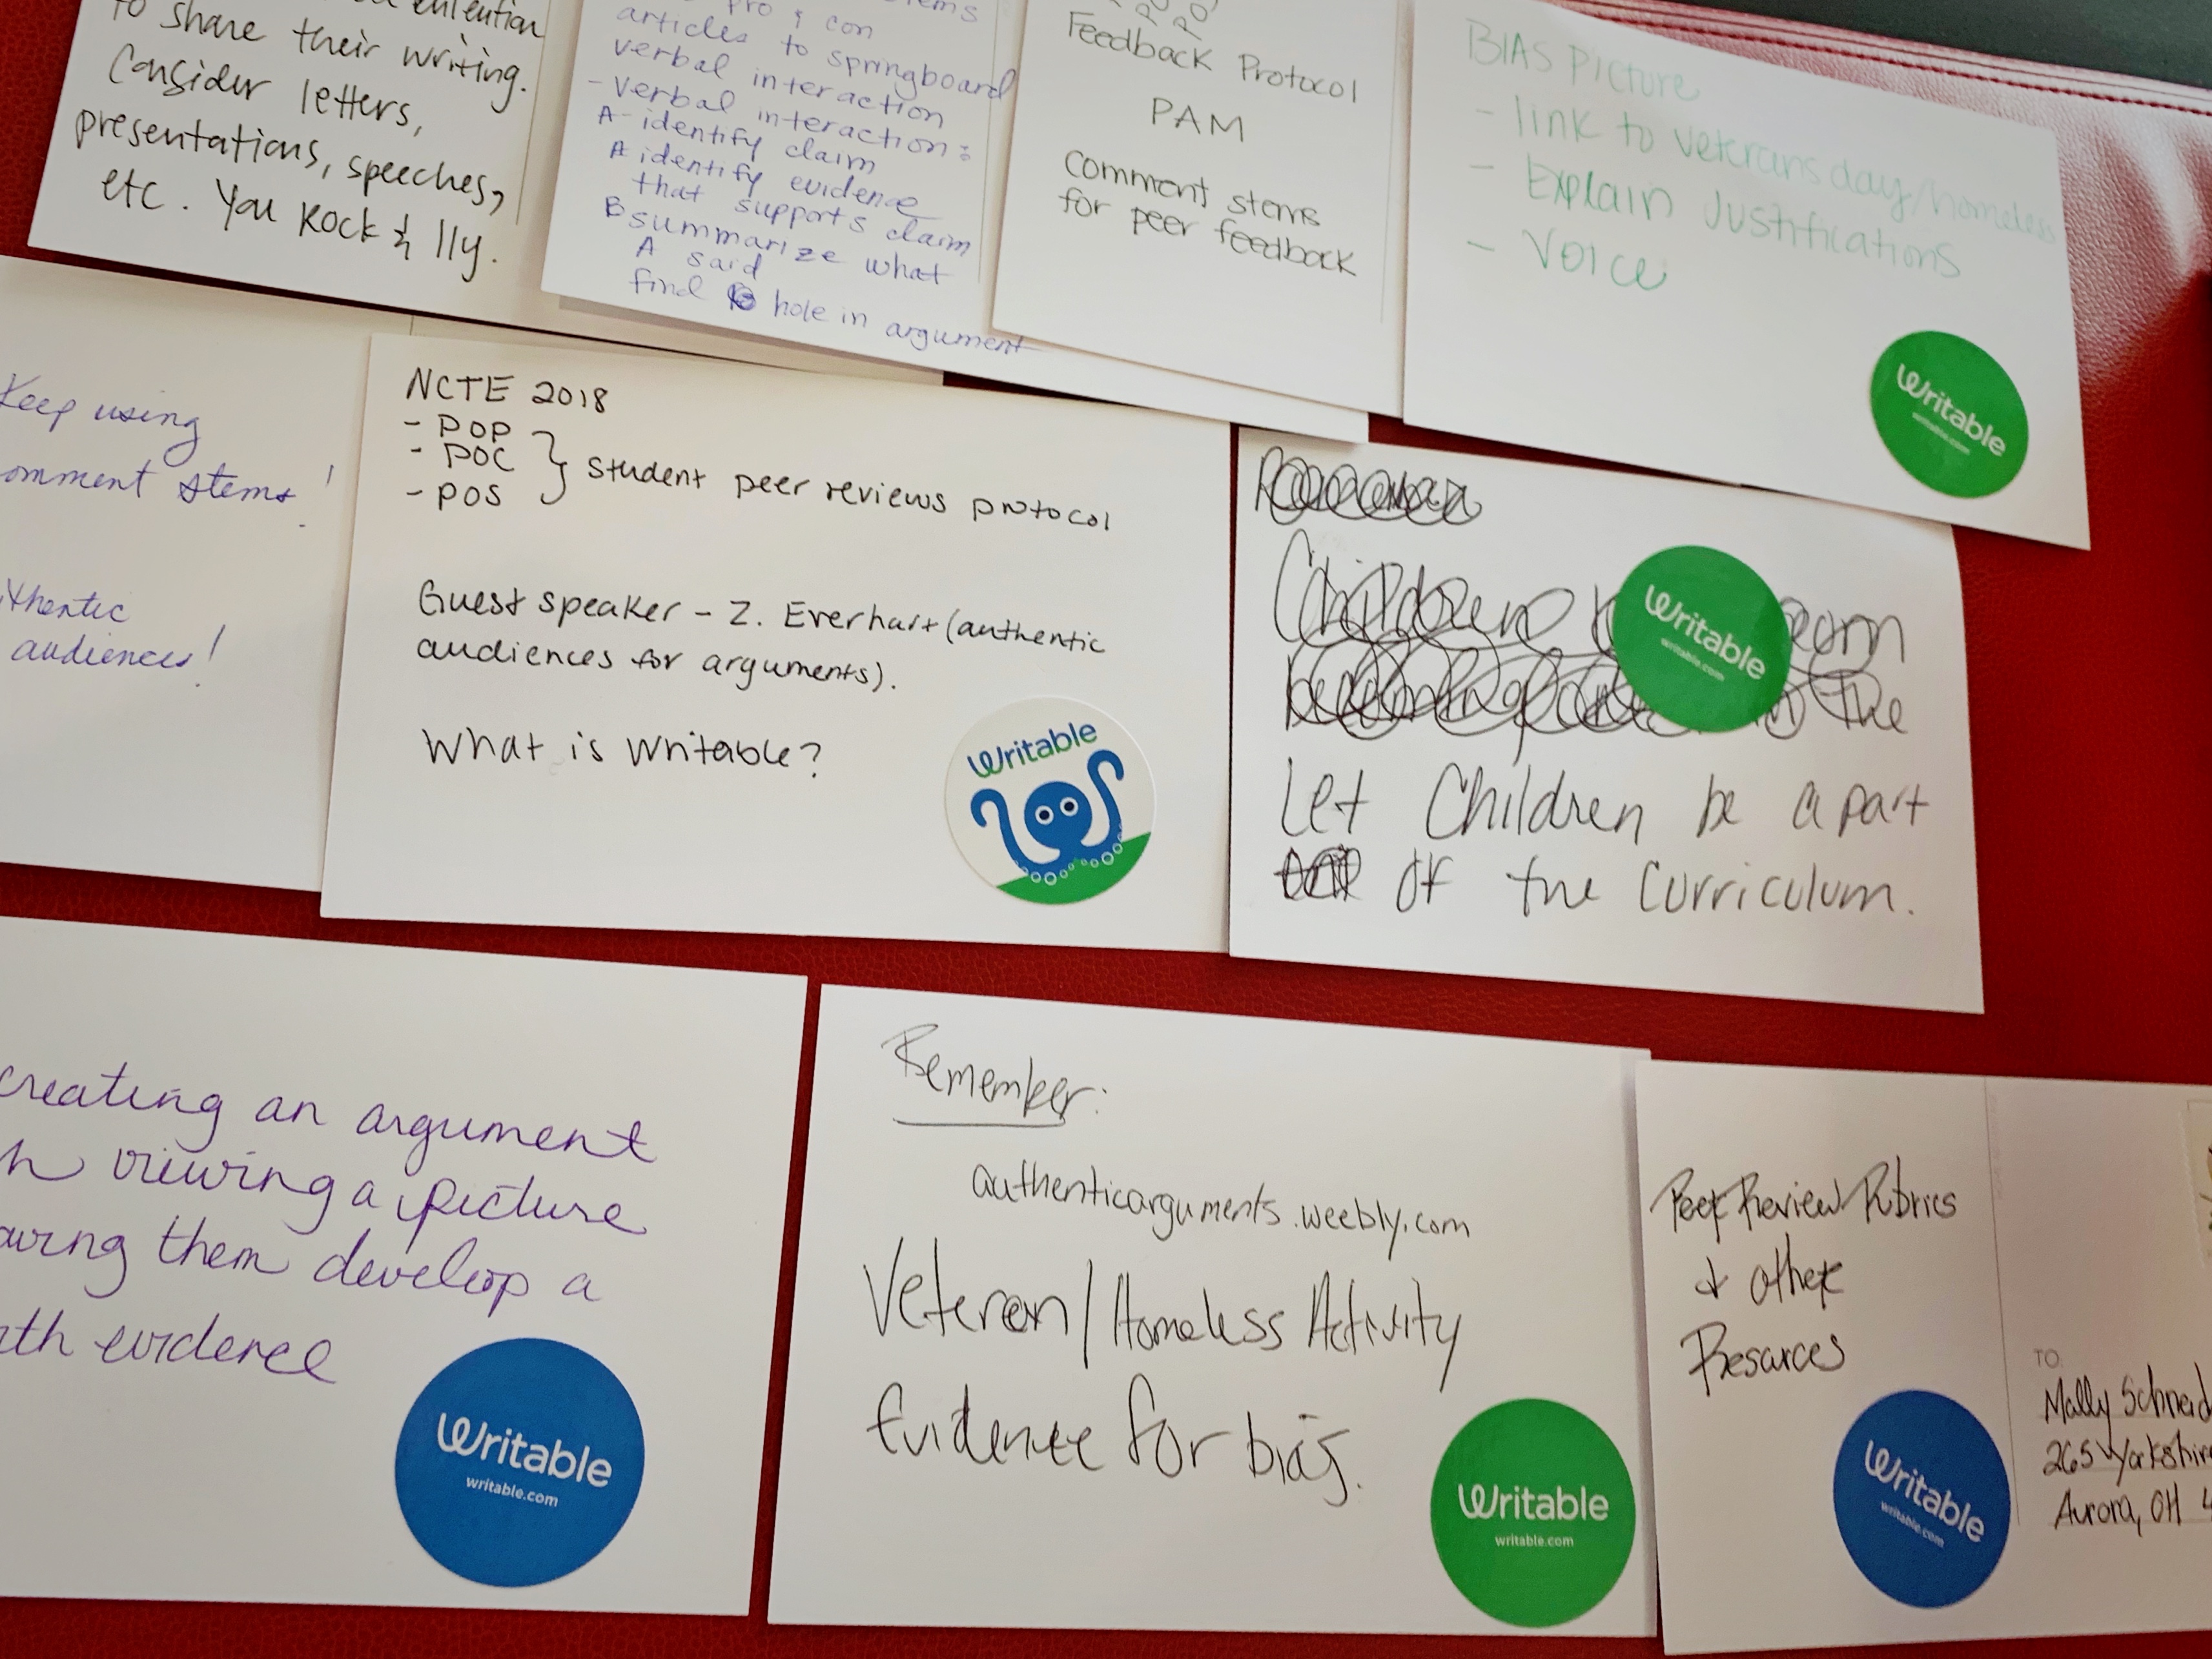 to share their writing.
Consider letters,
presentations, speeches,
etc. You Rock & Ily.
pro & con
articles to springboard
verbal interaction
- verbal interaction:
A - identify claim
A identify evidence
that supports claim
B summarize what
A said
find hole in argument
Feedback Protocol
PAM
Comment stems
for peer feedback
BIAS Picture
- link to veterans day/homeless
- Explain Justifications
- Voice
Writable
writable.com
Keep using
omment stems!
thentic
audiences!
NCTE 2018
- POP
- POC
- POS
student peer reviews protocol
Guest speaker - Z. Everhart (authentic
audiences for arguments).
What is Writable?
Writable
Children
the
Writable
writable.com
Let Children be a part
of the Curriculum.
creating an argument
viewing a picture
them develop a
evidence
Writable
writable.com
Remember:
authenticarguments.weebly.com
Veteran/Homeless Activity
Evidence for bias.
Writable
writable.com
Peer Review Rubrics
& other
Resources
Writable
writable.com
TO:
Mally Schneid
265 Yorkshir
Aurora, OH 4